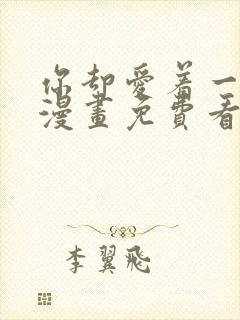 你却愛着一
漫畫免費看
李翼飛